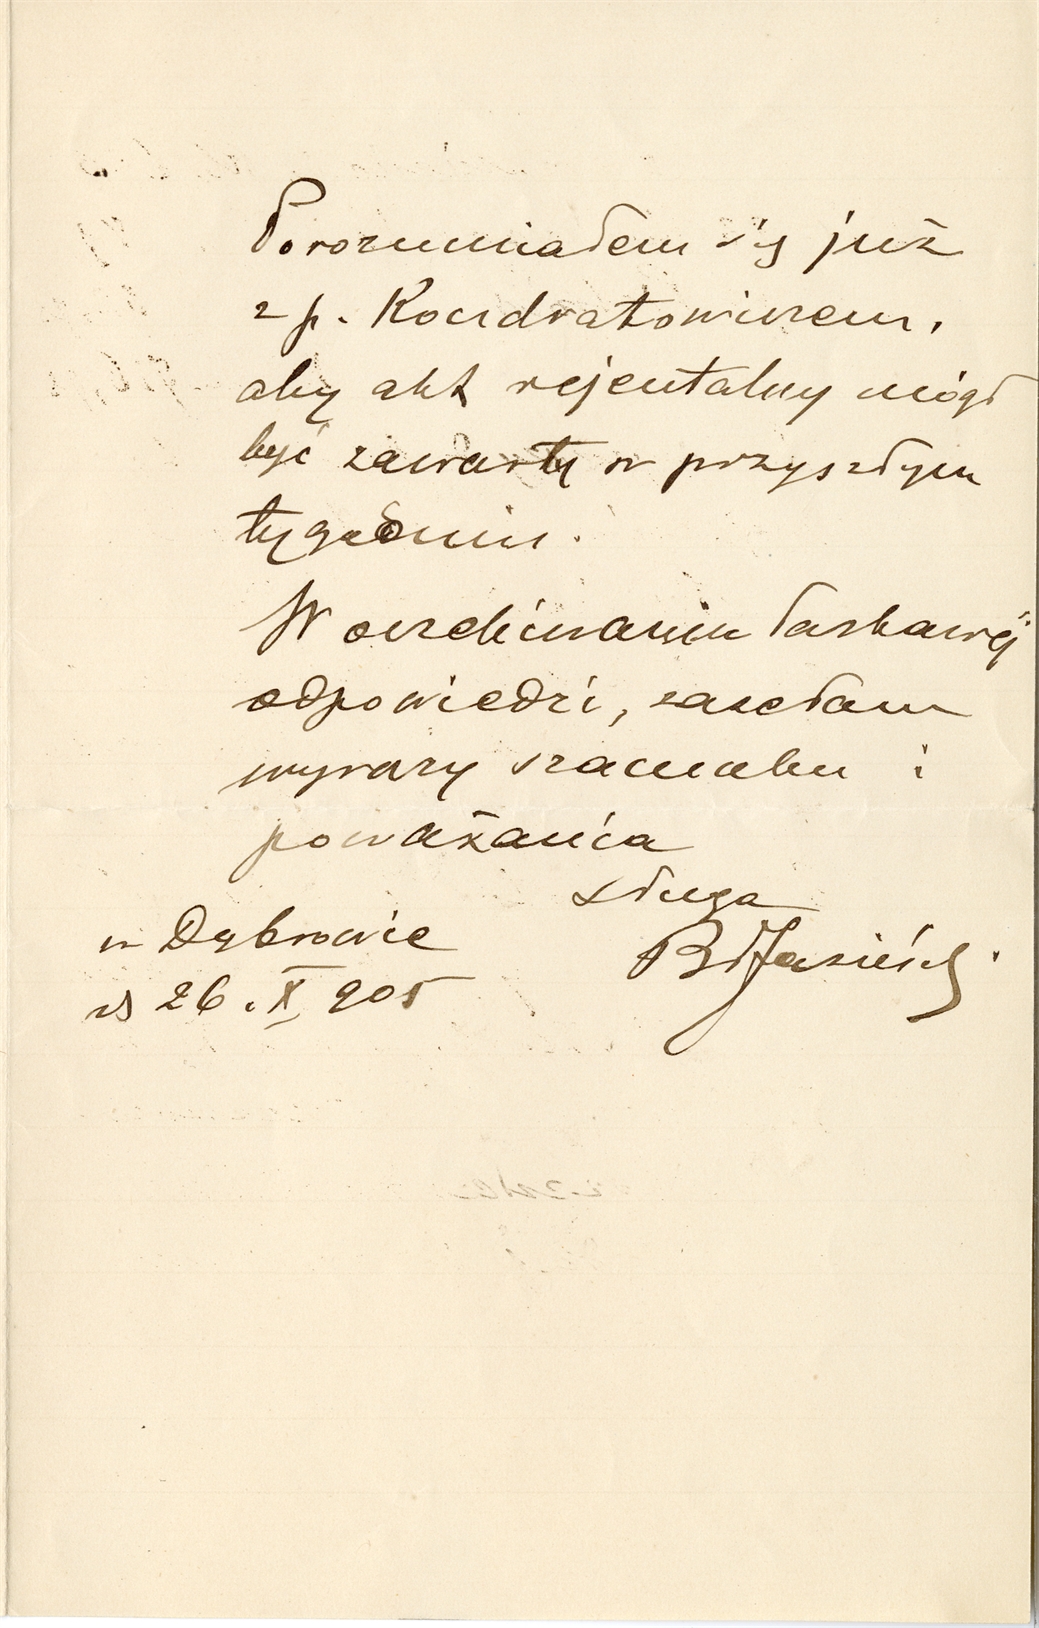 Porozumiałem się już
z p. Kondratowiczem,
aby akt rejentalny mógł
być zawarty w przyszłym
tygodniu.
W oczekiwaniu łaskawej
odpowiedzi, zasełam
wyrazy szacunku i
poważania
sługa
w Dąbrowie
d 26. X 905